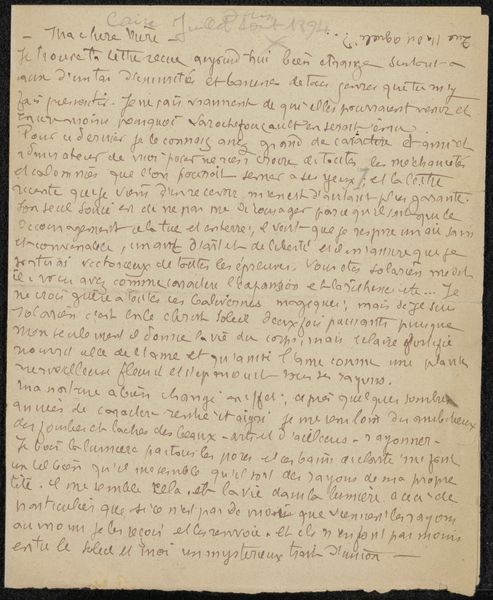 Caire Juillet Août 1894
- Ma chère Mère -
Je trouve ta lettre reçue aujourd'hui bien étrange surtout a
d'inimitiés et de tous genres que tu m'y
fais pressentir. Je ne sais vraiment de qui elles pourraient venir et
encore moins pourquoi Larochefoucault en serait ému.
Pour ce dernier je le connais grand de caractère et ami et
admirateur de moi pour ne rien croire de toutes les méchancetés
et calomnies que l'on pourrait semer a ses yeux, et la lettre
récente que je viens d'en recevoir, m'en est d'autant plus garante.
Son seul souci est de ne pas me décourager parce qu'il sait que le
découragement me tue et enterre; il veut que je respire un air sain
et convenable, un air d'art et de liberté et il m'assure que je
sortirai victorieux de toutes les épreuves. Vous etes solarien m'a dit
vous avez comme caractère et la richesse etc... Je
ne crois guère a toutes ces magiques; mais si je suis
solarien c'est en le Christ Soleil deux fois puissant puisque
non seulement il donne la vie du corps, mais eclaire purifie
nourrit celle de l'ame et qu'ainsi l'ame comme une plante
merveilleuse fleurit et s'epanouit sous ses rayons.
Ma nature a bien changé en effet; après quelques sombres
années de caractère rentré et aigri je me sens loin du
des fourbes et laches des beaux-arts et d'ailleurs - rayonner -
Je bois la lumière par tous les pores et ces bains de clarté me font
un tel bien qu'il me semble qu'il sort des rayons de ma propre
tête. Il me semble cela, et la vie dans la lumière a ceci de
particulier que si ce n'est pas de moi que viennent les rayons
au moins je les reçois et les renvoie - et ils n'en font pas moins
entre le soleil et moi un mysterieux trait d'union -